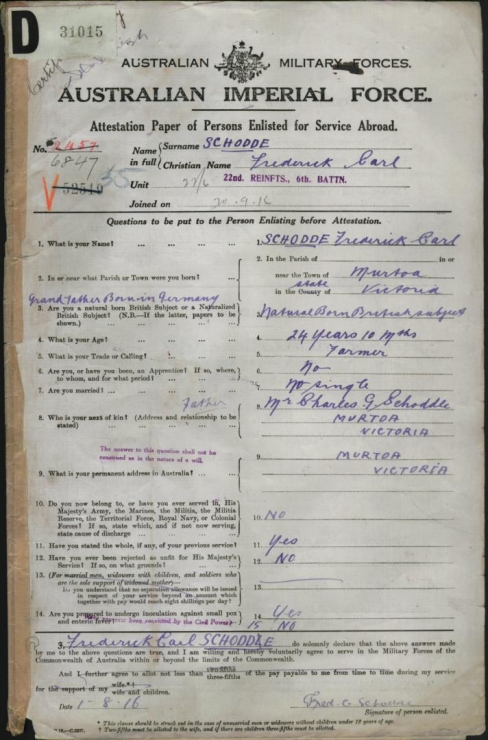 D
31015
AUSTRALIAN MILITARY FORCES.
AUSTRALIAN IMPERIAL FORCE.
Attestation Paper of Persons Enlisted for Service Abroad.
No. 2457
6847
52519
Name in full
Surname SCHODDE
Christian Name Frederick Carl
Unit 22/6 22nd. REINFTS., 6th. BATTN.
Joined on 20.9.16
Questions to be put to the Person Enlisting before Attestation.
1. What is your Name? ... ... ... 1. SCHODDE Frederick Carl
2. In or near what Parish or Town were you born? ...
2. In the Parish of in or
near the Town of Murtoa
state
in the County of Victoria
Grandfather Born in Germany
3. Are you a natural born British Subject or a Naturalized British Subject? (N.B.—If the latter, papers to be shown.) ... 3. Natural Born British subject
4. What is your Age? ... ... ... 4. 24 Years 10 Mths
5. What is your Trade or Calling? ... ... 5. Farmer
6. Are you, or have you been, an Apprentice? If so, where, to whom, and for what period? ... 6. No
7. Are you married? ... ... ... 7. No single
Father
8. Who is your next of kin? (Address and relationship to be stated) ... 8. Mr Charles G. Schodde
MURTOA
VICTORIA
The answer to this question shall not be
construed as in the nature of a will.
9. What is your permanent address in Australia? ... 9. MURTOA
VICTORIA
10. Do you now belong to, or have you ever served in, His
Majesty's Army, the Marines, the Militia, the Militia
Reserve, the Territorial Force, Royal Navy, or Colonial
Forces? If so, state which, and if not now serving,
state cause of discharge ... 10. NO
11. Have you stated the whole, if any, of your previous service? 11. Yes
12. Have you ever been rejected as unfit for His Majesty's
Service? If so, on what grounds? ... 12. NO
13. (For married men, widowers with children, and soldiers who
are the sole support of widowed mother)—
Do you understand that no separation allowance will be
issued in respect of your service beyond an amount which
together with pay would reach eight shillings per day? 13.
14. Are you prepared to undergo inoculation against small pox
and enteric fever? 14. Yes
15 NO
I, Frederick Carl SCHODDE do solemnly declare that the above answers made
by me to the above questions are true, and I am willing and hereby voluntarily agree to serve in the Military Forces of the
Commonwealth of Australia within or beyond the limits of the Commonwealth.
And I further agree to allot not less than three-fifths of the pay payable to me from time to time during my service
for the support of my wife
wife and children.
Date 1-8-16
Fred. C. Schodde
Signature of person enlisted.
* This clause should be struck out in the case of unmarried men or widowers without children under 18 years of age.
† Two-fifths must be allotted to the wife, and if there are children three-fifths must be allotted.